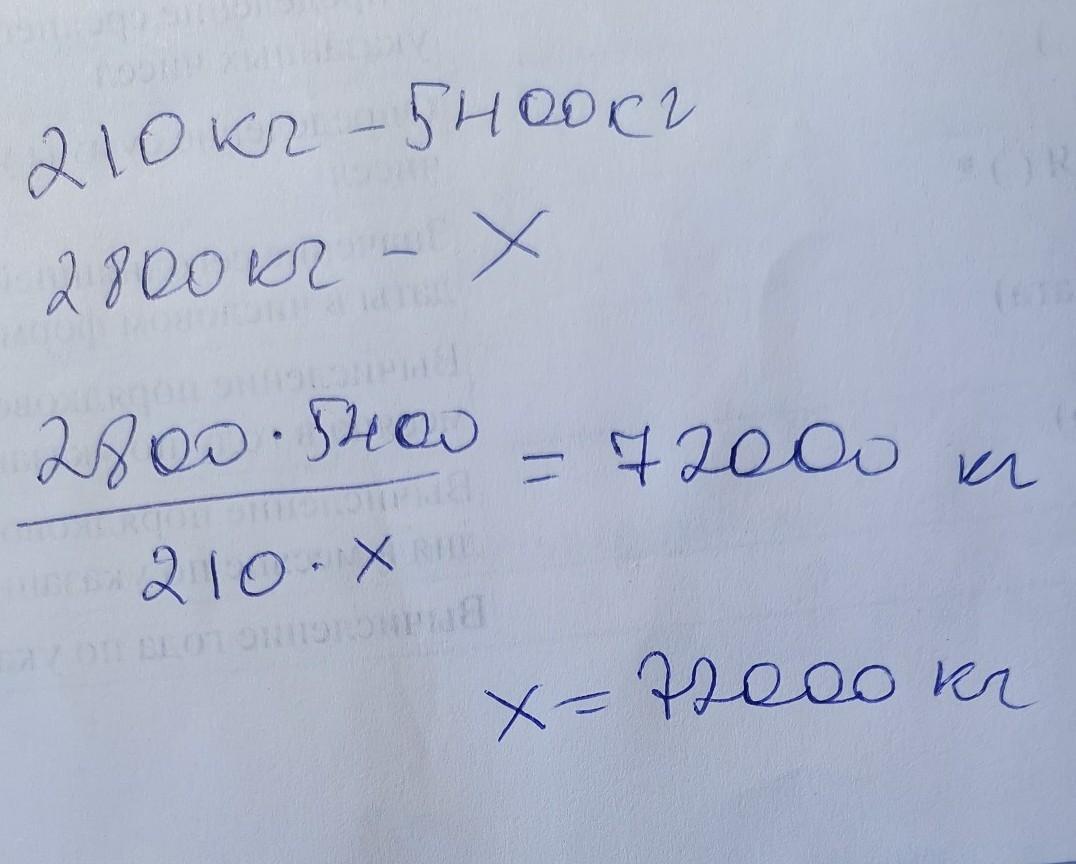 210кг - 5400кг
2800кг - х
2800 · 5400
210 · х
= 72000 кг
х = 72000 кг